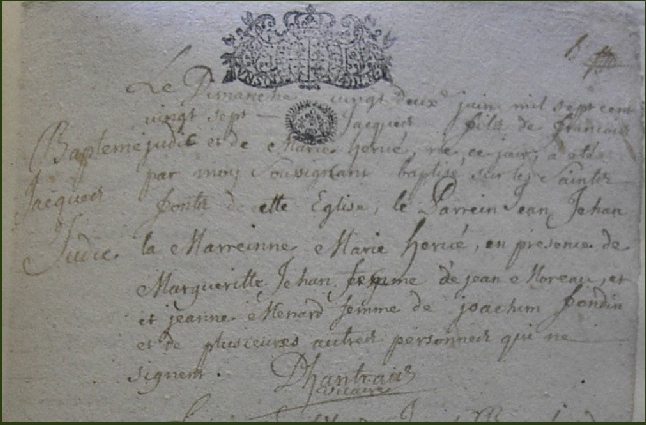 Le Dimanche vingt deux juin mil sept cent
vingt sept Jacques fils de francois
Bapteme judic et de Marie hervé, né ce jour, a eté
par moy Sousignant baptisé sur les Saintes
Jacques
fonts de cette Eglise, le Parrein Jean Jehan
Judic la Marreinne Marie hervé, en présence de
Margueritte Jehan femme de jean Moreau, et
et jeanne Menard femme de joachim fondin
et de plusieures autres personnes qui ne
signent. Dhantrais
vicaire